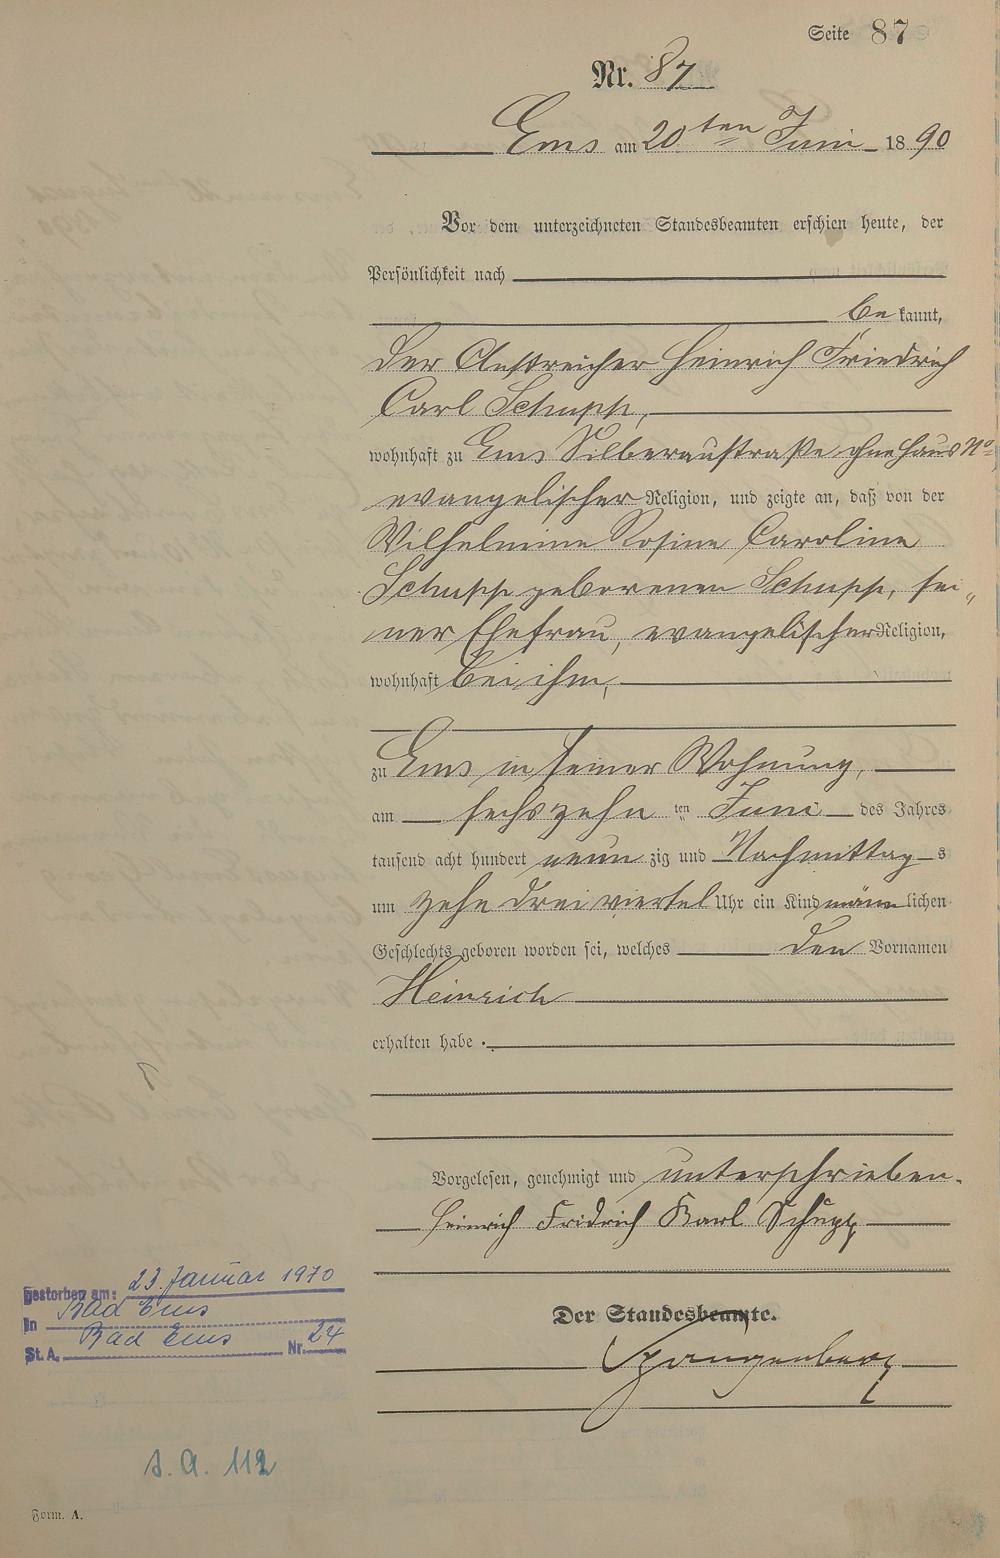 Seite 87
Nr. 87
Ems am 20ten Juni 1890
Vor dem unterzeichneten Standesbeamten erschien heute, der
Persönlichkeit nach
be kannt,
der Anstreicher Heinrich Friedrich
Carl Schupp,
wohnhaft zu Ems Silberaustraße ohne Haus No
evangelischer Religion, und zeigte an, daß von der
Wilhelmine Rosine Caroline
Schupp geborenen Schupp, sei„
ner Ehefrau, evangelischer Religion,
wohnhaft bei ihm,
zu Ems in seiner Wohnung,
am sechszehn ten Juni des Jahres
tausend acht hundert neun zig und Nachmittag s
um zehn drei viertel Uhr ein Kind männ lichen
Geschlechts geboren worden sei, welches den Vornamen
Heinrich
erhalten habe.
Vorgelesen, genehmigt und unterschrieben.
Heinrich Fridrich Karl Schupp
Der Standesbeamte.
Spangenberg
Gestorben am: 23. Januar 1970
in Bad Ems
St. A. Bad Ems Nr. 24
s. A. 112
Form. A.